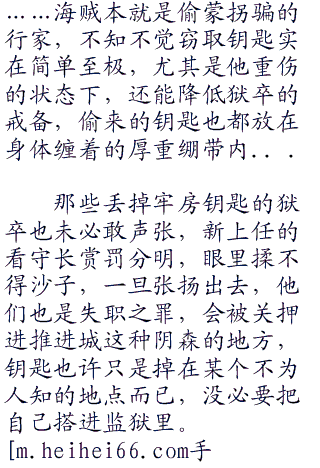 ……海贼本就是偷蒙拐骗的
行家，不知不觉窃取钥匙实
在简单至极，尤其是他重伤
的状态下，还能降低狱卒的
戒备，偷来的钥匙也都放在
身体缠着的厚重绷带内...
那些丢掉牢房钥匙的狱
卒也未必敢声张，新上任的
看守长赏罚分明，眼里揉不
得沙子，一旦张扬出去，他
们也是失职之罪，会被关押
进推进城这种阴森的地方，
钥匙也许只是掉在某个不为
人知的地点而已，没必要把
自己搭进监狱里。
[m.heihei66.com手